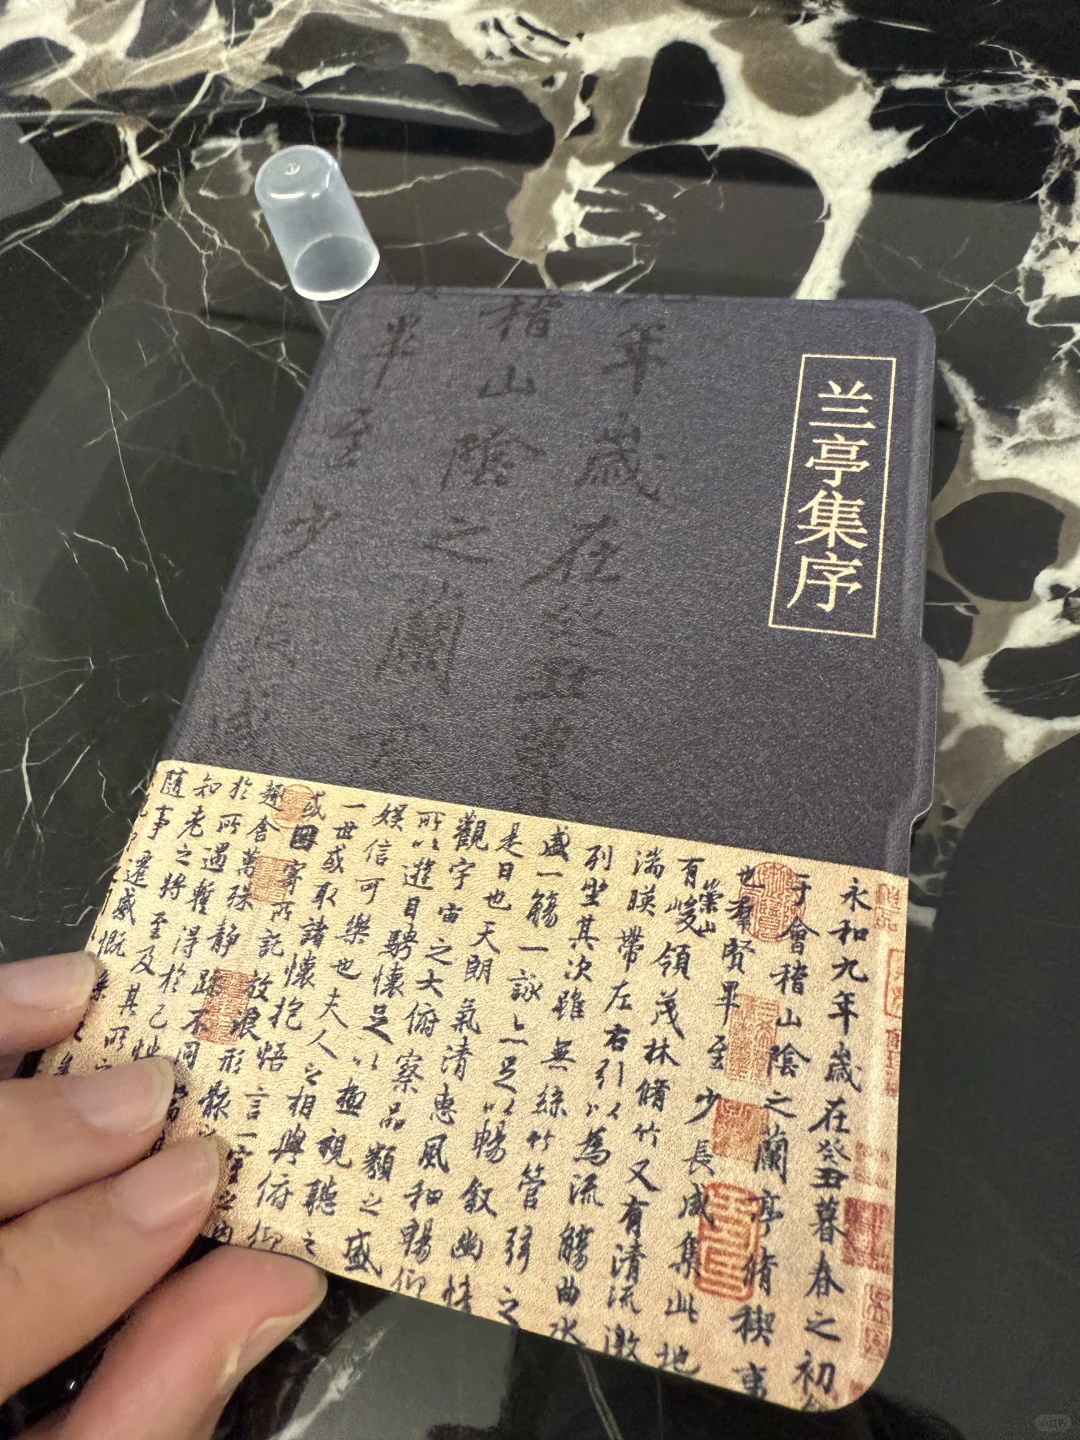 兰亭集序
年歲在癸丑暮
稽山陰之蘭亭
畢至少長咸
永和九年歲在癸丑暮春之初
于會稽山陰之蘭亭脩稧事
也羣賢畢至少長咸集此地
有崇山峻領茂林脩竹又有清流激
湍暎帶左右引以為流觴曲水
列坐其次雖無絲竹管弦之
盛一觴一詠亦足以暢敘幽情
是日也天朗氣清惠風和暢仰
觀宇宙之大俯察品類之盛
所以遊目騁懷足以極視聽之
娛信可樂也夫人之相與俯仰
一世或取諸懷抱悟言一室之內
或因寄所託放浪形骸之
趣舍萬殊靜躁不同當
於所遇暫得於己怏
知老之將至及其所之
隨事遷感慨係